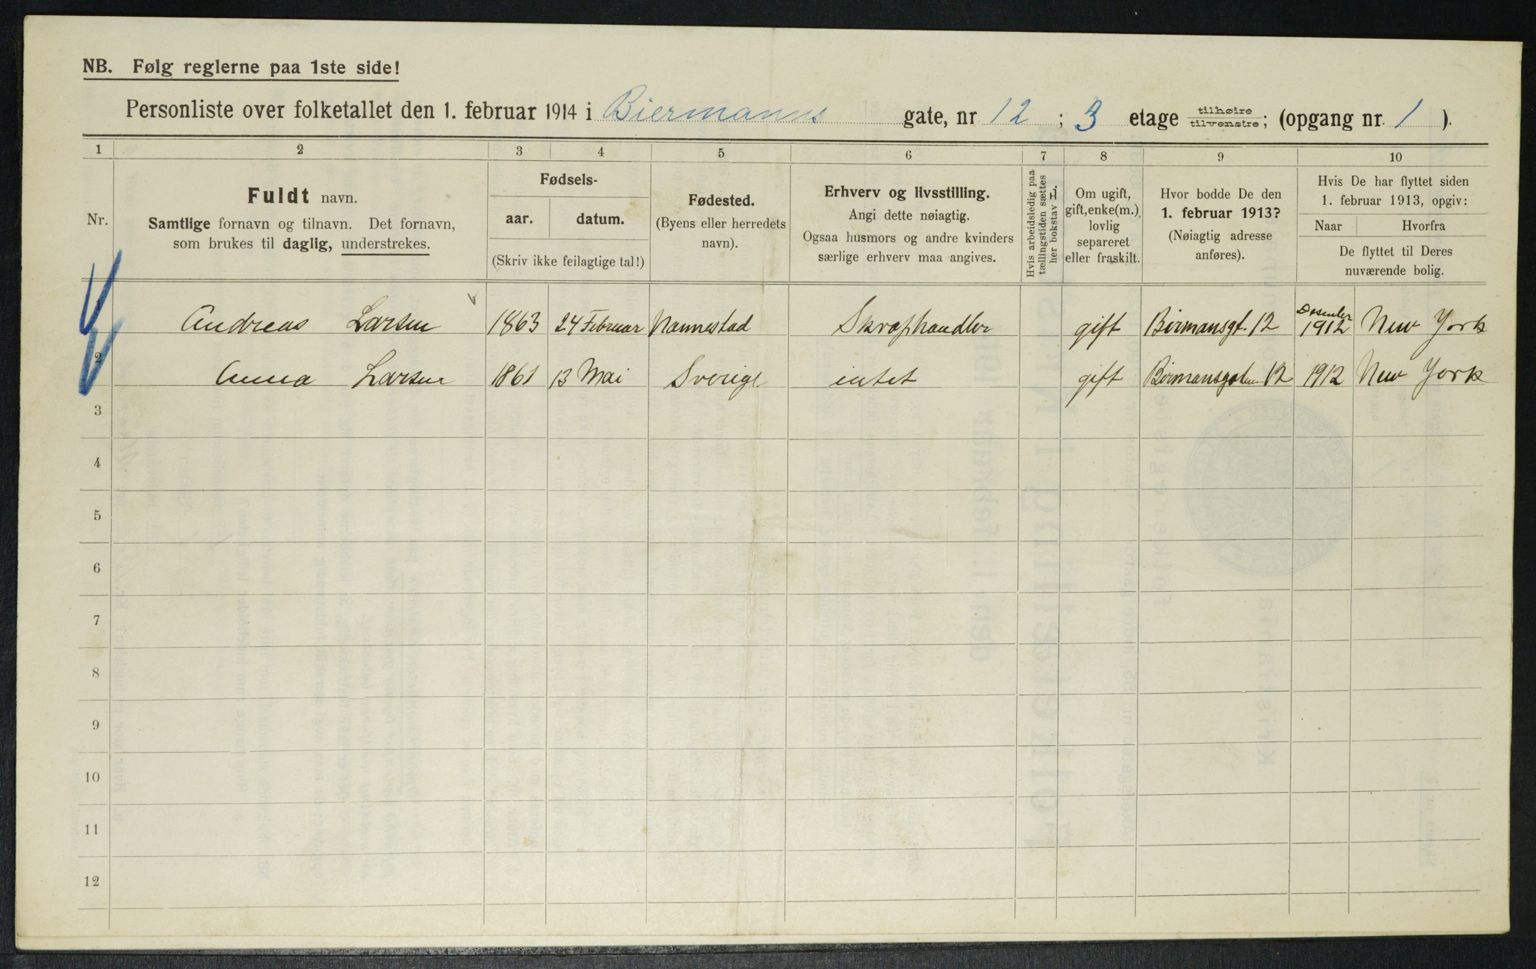 NB. Følg reglerne paa 1ste side!
Personliste over folketallet den 1. februar 1914 i Biermanns gate, nr 12 ; 3 etage tilhøire tilvenstre; (opgang nr. 1 ).
1 2 3 4 5 6 7 8 9 10
Nr.
Fuldt navn.
Samtlige fornavn og tilnavn. Det fornavn,
som brukes til daglig, understrekes.
Fødsels-
aar. datum.
(Skriv ikke feilagtige tal!)
Fødested.
(Byens eller herredets
navn).
Erhverv og livsstilling.
Angi dette nøiagtig.
Ogsaa husmors og andre kvinders
særlige erhverv maa angives.
Hvis arbeidsledig paa
tællingstiden sættes
her bokstav L.
Om ugift,
gift, enke(m.),
lovlig
separeret
eller fraskilt.
Hvor bodde De den
1. februar 1913?
(Nøiagtig adresse
anføres).
Hvis De har flyttet siden
1. februar 1913, opgiv:
Naar Hvorfra
De flyttet til Deres
nuværende bolig.
Andreas Larsen 1863 24 Februar Nannestad Skraphandler gift Birmansgt. 12 Desember 1912 New York
2 Anna Larsen 1861 13 Mai Sverige intet gift Birmansgaten 12 1912 New York
3
4
5
6
7
8
9
10
11
12